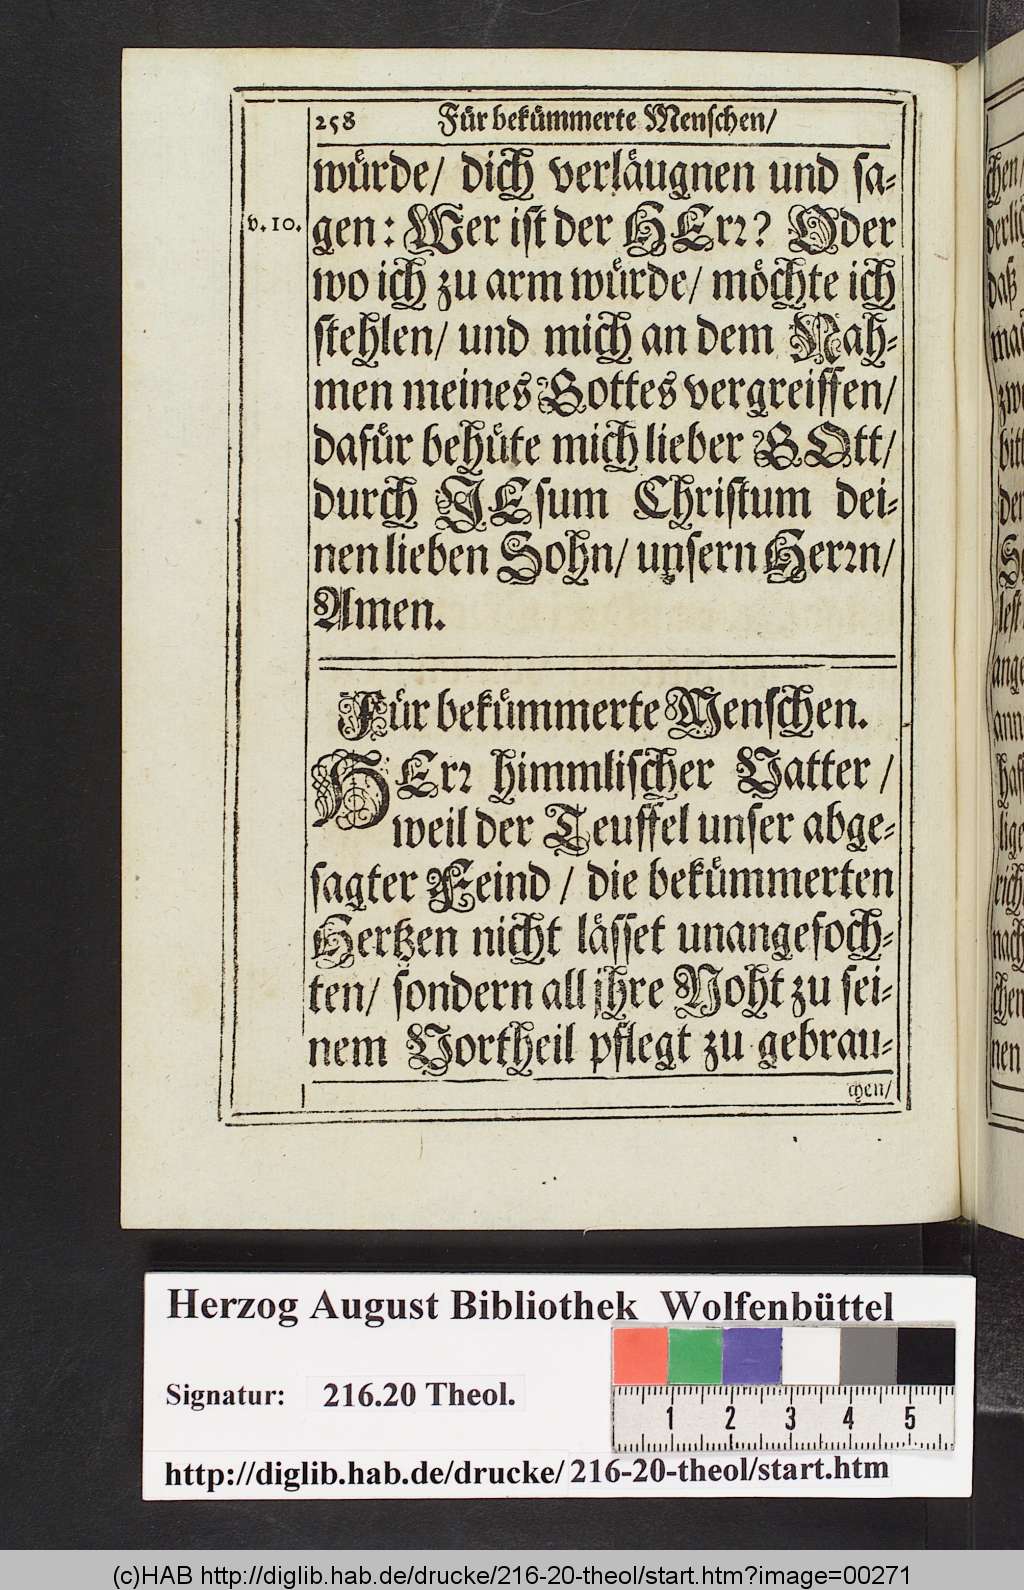 258 Für bekümmerte Menschen/
würde/ dich verläugnen und sa-
v. 10. gen: Wer ist der HErr? Oder
wo ich zu arm würde/ möchte ich
stehlen/ und mich an dem Nah-
men meines Gottes vergreiffen/
dafür behüte mich lieber GOtt/
durch JEsum Christum dei-
nen lieben Sohn/ unsern Herrn/
Amen.
Für bekümmerte Menschen.
HErr himmlischer Vatter /
weil der Teuffel unser abge-
sagter Feind / die bekümmerten
Hertzen nicht lässet unangefoch-
ten/ sondern all jhre Noht zu sei-
nem Vortheil pflegt zu gebrau-
chen/
Herzog August Bibliothek Wolfenbüttel
Signatur: 216.20 Theol.
1 2 3 4 5
http://diglib.hab.de/drucke/216-20-theol/start.htm
(c)HAB http://diglib.hab.de/drucke/216-20-theol/start.htm?image=00271